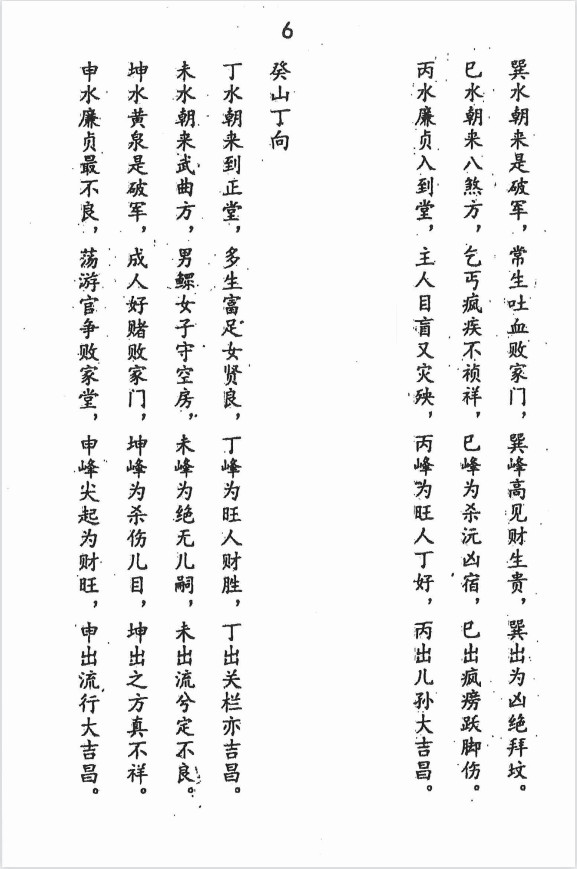 6
巽水朝来是破军，常生吐血败家门，巽峰高见财生贵，巽出为凶绝拜坟。
巳水朝来八煞方，乞丐疯疾不祯祥，巳峰为杀沅凶宿，巳出疯痨跃脚伤。
丙水廉贞入到堂，主人目盲又灾殃，丙峰为旺人丁好，丙出儿孙大吉昌。
癸山丁向
丁水朝来到正堂，多生富足女贤良，丁峰为旺人财胜，丁出关栏亦吉昌。
未水朝来武曲方，男鳏女子守空房，未峰为绝无儿嗣，未出流兮定不良。
坤水黄泉是破军，成人好赌败家门，坤峰为杀伤儿目，坤出之方真不祥。
申水廉贞最不良，荡游官争败家堂，申峰尖起为财旺，申出流行大吉昌。